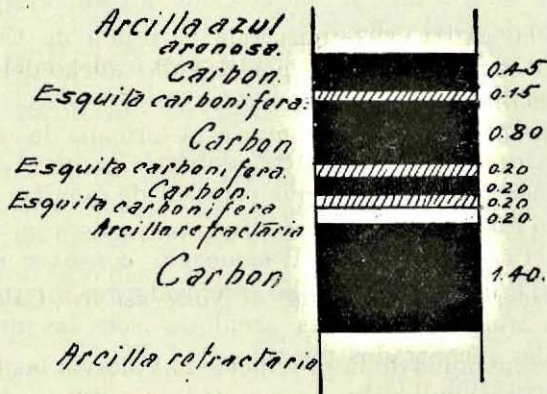 Arcilla azul
aronosa.
Carbon. 0.45
Esquita carbonifera. 0.15
Carbon 0.80
Esquita carbonifera. 0.20
Carbon. 0.20
Esquita carbonifera 0.20
Arcilla refractaria 0.20
Carbon 1.40.
Arcilla refractaria